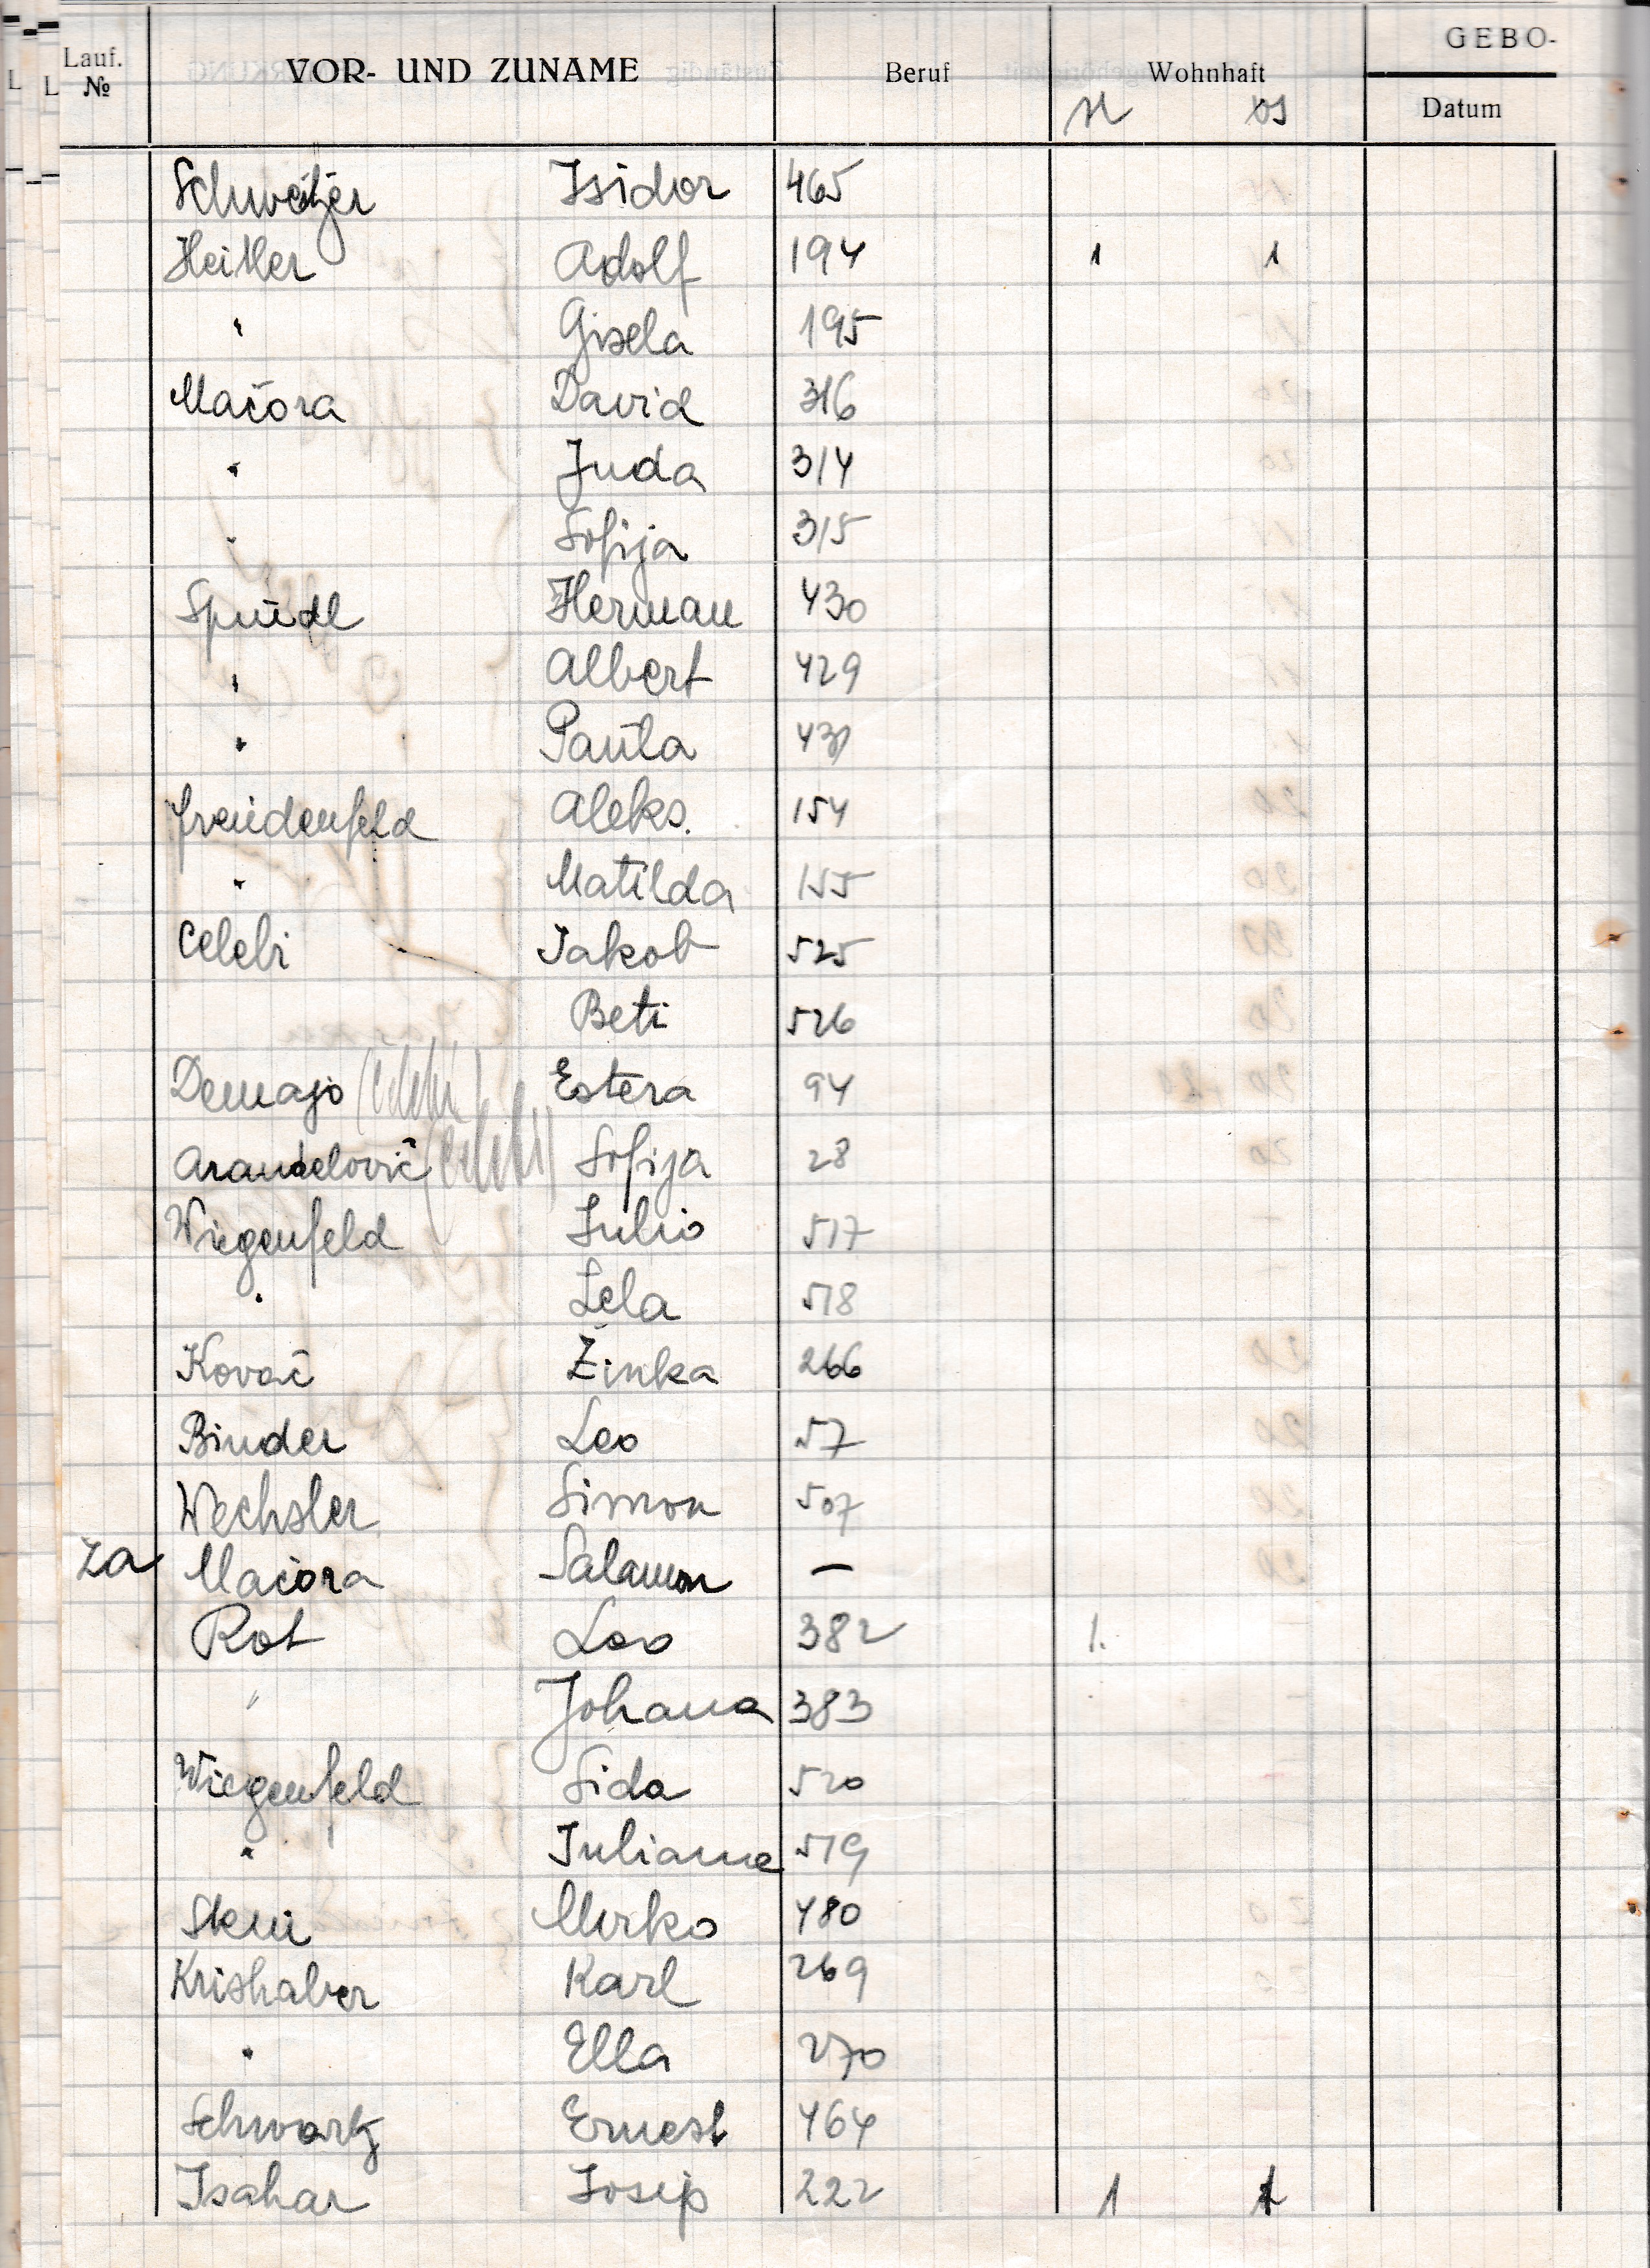 Lauf. № VOR- UND ZUNAME Beruf Wohnhaft GEBO-
Datum
Schweitzer Isidor 465
Heitler Adolf 194 1 1
" Gisela 195
Mačora David 316
" Juda 314
" Sofija 315
Herman 430
" Albert 429
" Paula 431
Freudenfeld Aleks. 154
" Matilda 155
Celebi Jakob 525
Beti 526
Demajo (Celebi) Estera 94
Aranđelovič (Celebi) Sofija 28
Wiegenfeld Julio 517
" Lela 518
Kovač Žinka 266
Binder Leo 57
Wechsler Simon 507
za Mačora Salamon —
Rot Leo 382 1.
" Johana 383
Wiegenfeld Sida 520
" Juliana 519
Mirko 480
Krishaber Karl 269
" Ella 270
Schwartz Ernest 464
Isahar Josip 222 1 1